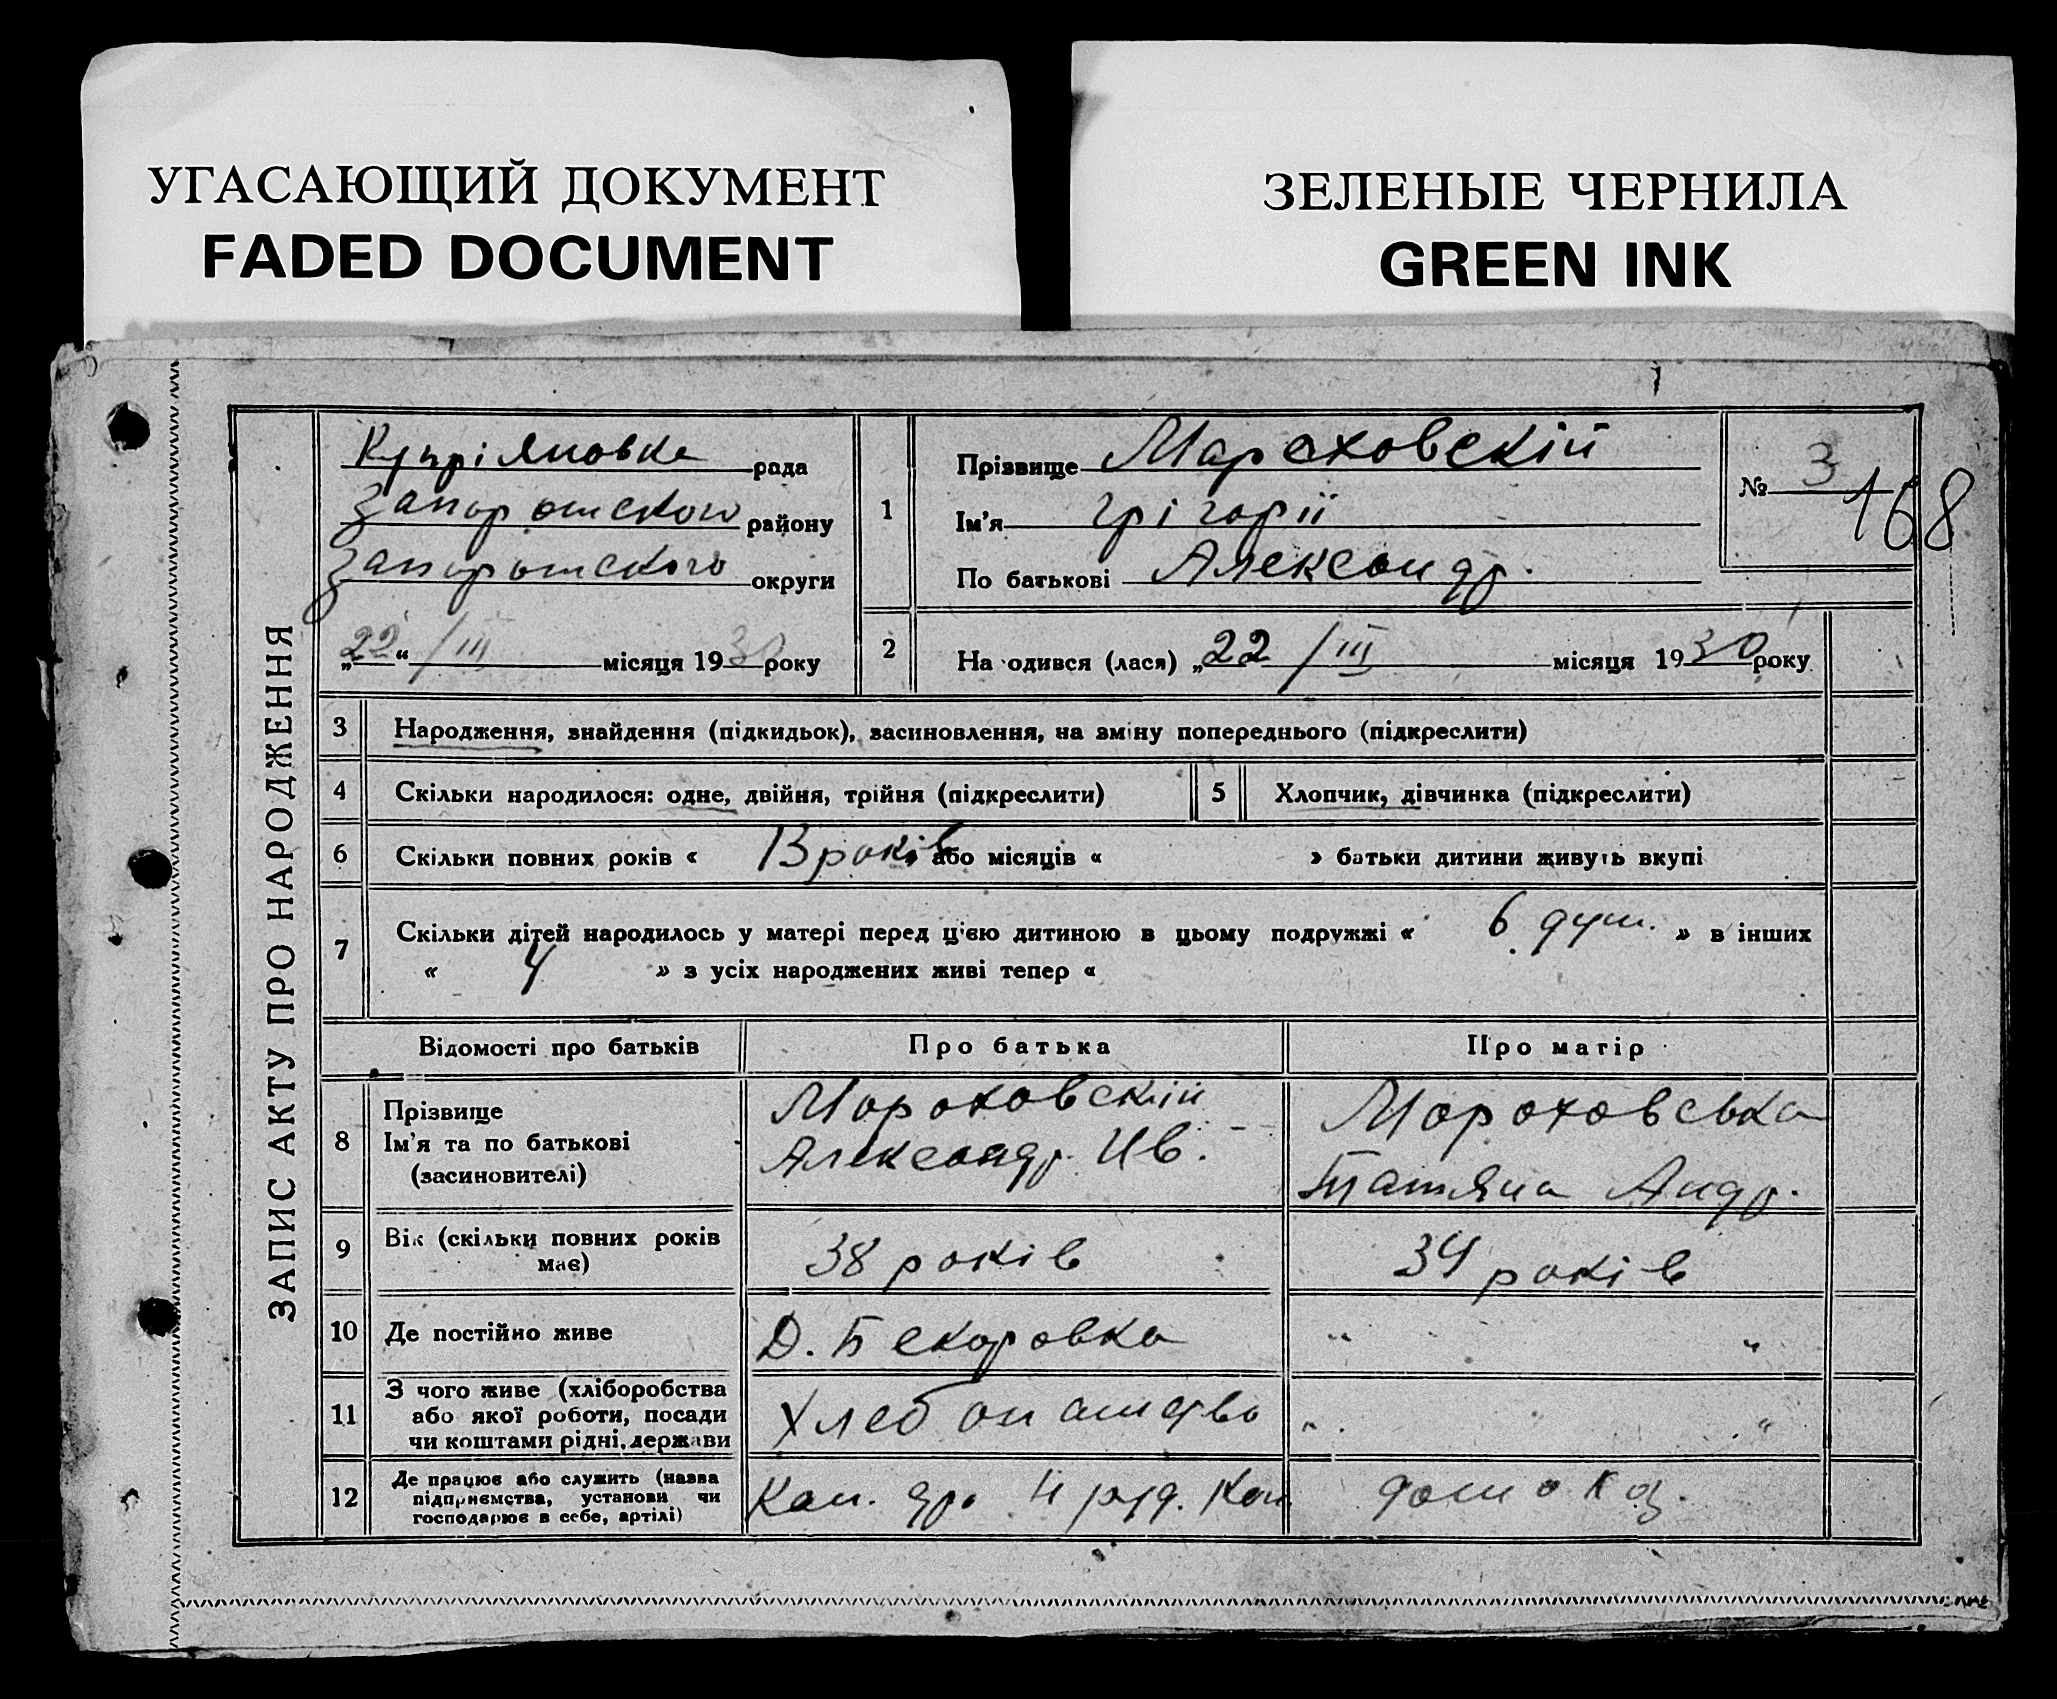 УГАСАЮЩИЙ ДОКУМЕНТ
FADED DOCUMENT
ЗЕЛЕНЫЕ ЧЕРНИЛА
GREEN INK
ЗАПИС АКТУ ПРО НАРОДЖЕННЯ
Купріяновка рада
району
округи
„22“ /III місяця 1930 року
1 Прізвище Мароховскій
Ім'я Грігорії
По батькові Александр.
№ 3
168
2 На одився (лася) „22 /III місяця 1930 року
3 Народження, знайдення (підкидьок), засиновлення, на зміну попереднього (підкреслити)
4 Скільки народилося: одне, двійня, трійня (підкреслити)
5 Хлопчик, дівчинка (підкреслити)
6 Скільки повних років « 13 років або місяців « » батьки дитини живуть вкупі
7 Скільки дітей народилось у матері перед ц'єю дитиною в цьому подружжі « 6 душ. » в інших
« 4 » з усіх народжених живі тепер «
Відомості про батьків
Про батька
Про матір
8 Прізвище
Ім'я та по батькові
(засиновителі)
Мороховскій
Александр. Ив.
Мороховська
Татяна Андр.
9 Вік (скільки повних років
має)
38 років
34 років
10 Де постійно живе
Д. Бекаровка
" "
11 З чого живе (хліборобства
або якої роботи, посади
чи коштами рідні, держави
" "
12 Де працює або служить (назва
підприємства, установи чи
господарює в себе, артілі)